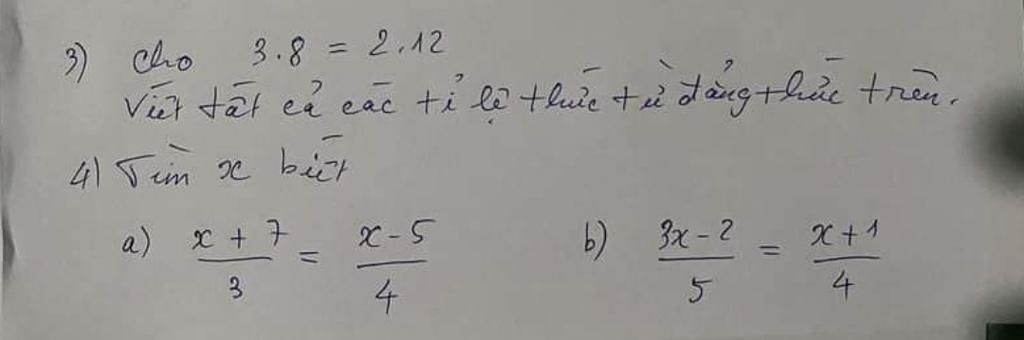 3) Cho 3.8 = 2.12
Viết tất cả các tỉ lệ thức từ đẳng thức trên.
4) Tìm x biết
a) (x + 7)/3 = (x - 5)/4 b) (3x - 2)/5 = (x + 1)/4